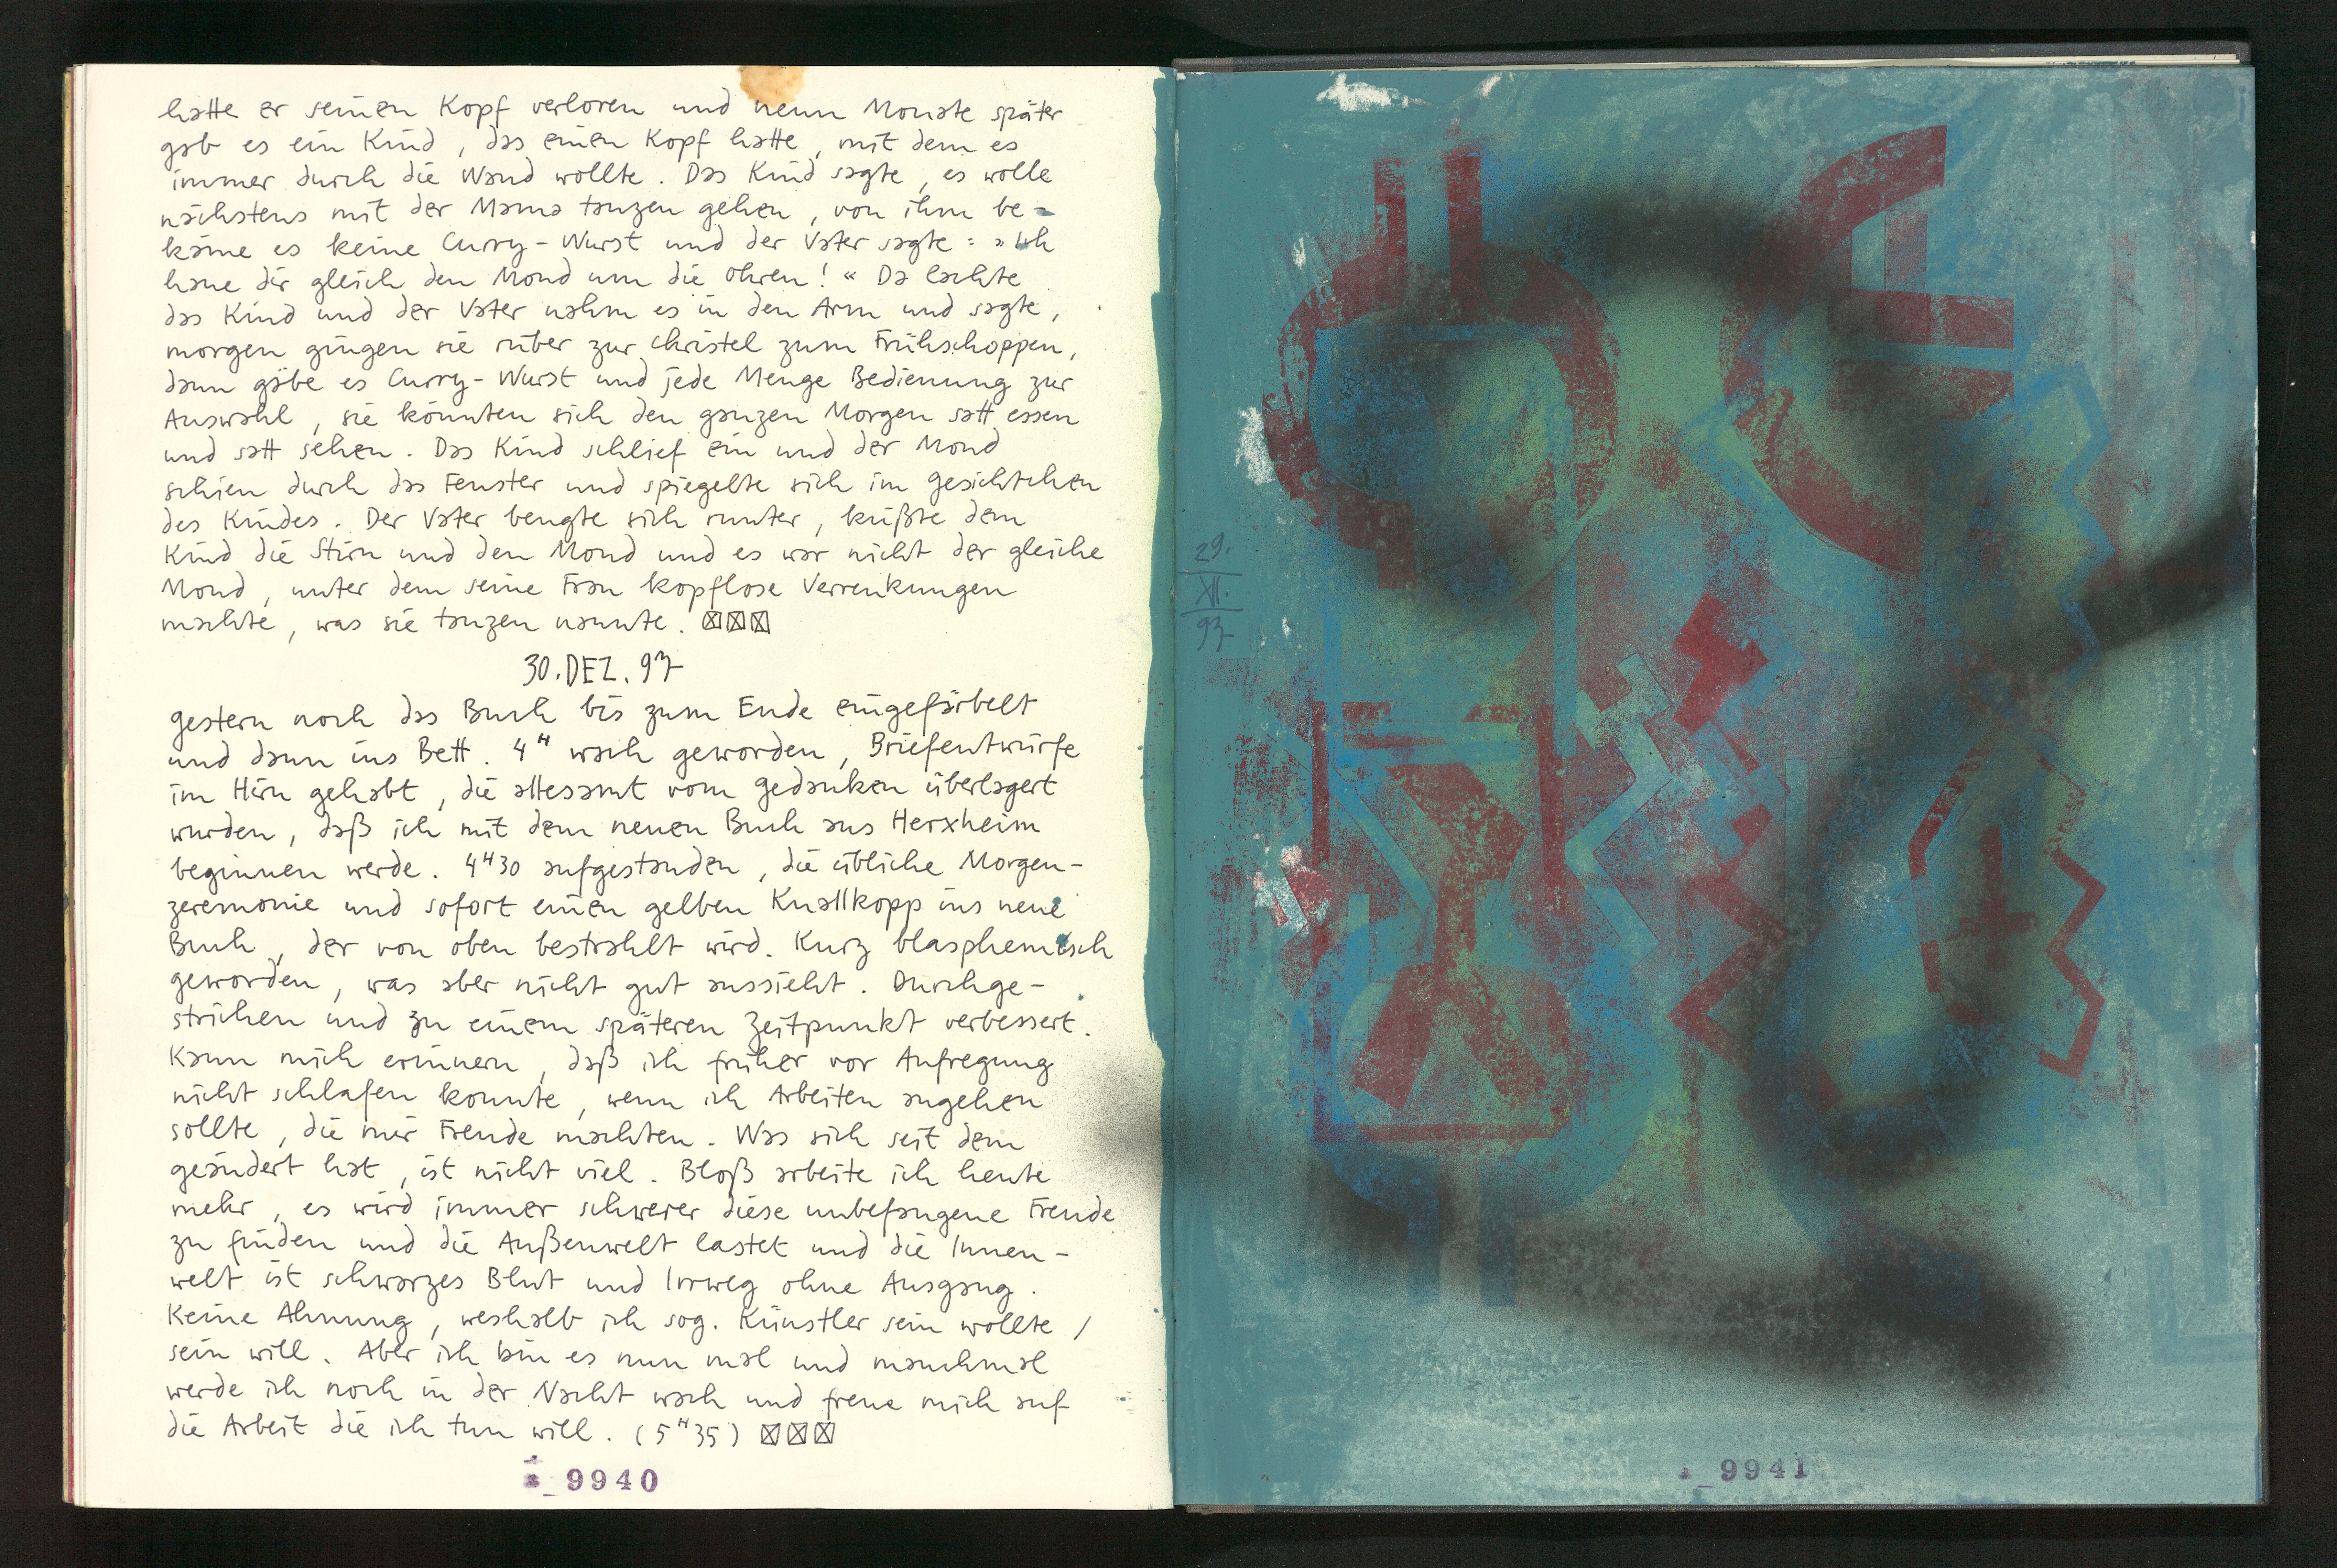 hatte er seinen Kopf verloren und neun Monate später
gab es ein Kind, das einen Kopf hatte, mit dem es
immer durch die Wand wollte. Das Kind sagte, es wolle
nächstens mit der Mama tanzen gehen, von ihm be-
käme es keine Curry-Wurst und der Vater sagte: »Ich
haue dir gleich den Mond um die Ohren!« Da lachte
das Kind und der Vater nahm es in den Arm und sagte,
morgen gingen sie rüber zur Christel zum Frühschoppen,
dann gäbe es Curry-Wurst und jede Menge Bedienung zur
Auswahl, sie könnten sich den ganzen Morgen satt essen
und satt sehen. Das Kind schlief ein und der Mond
schien durch das Fenster und spiegelte sich im Gesichtchen
des Kindes. Der Vater beugte sich runter, küßte dem
Kind die Stirn und den Mond und es war nicht der gleiche
Mond, unter dem seine Frau kopflose Verrenkungen
machte, was sie tanzen nannte. ☒☒☒
30.DEZ.97
gestern noch das Buch bis zum Ende eingefärbelt
und dann ins Bett. 4ᴴ wach geworden, Briefentwürfe
im Hirn gehabt, die allesamt vom Gedanken überlagert
wurden, daß ich mit dem neuen Buch aus Herxheim
beginnen werde. 4ᴴ30 aufgestanden, die übliche Morgen-
zeremonie und sofort einen gelben Knallkopp ins neue
Buch, der von oben bestrahlt wird. Kurz blasphemisch
geworden, was aber nicht gut aussieht. Durchge-
strichen und zu einem späteren Zeitpunkt verbessert.
Kann mich erinnern, daß ich früher vor Aufregung
nicht schlafen konnte, wenn ich Arbeiten angehen
sollte, die mir Freude machten. Was sich seit dem
geändert hat, ist nicht viel. Bloß arbeite ich heute
mehr, es wird immer schwerer diese unbefangene Freude
zu finden und die Außenwelt lastet und die Innen-
welt ist schwarzes Blut und Irrweg ohne Ausgang.
Keine Ahnung, weshalb ich sog. Künstler sein wollte /
sein will. Aber ich bin es nun mal und manchmal
werde ich noch in der Nacht wach und freue mich auf
die Arbeit die ich tun will. (5ᴴ35) ☒☒☒
9940
29.
XII.
97
9941